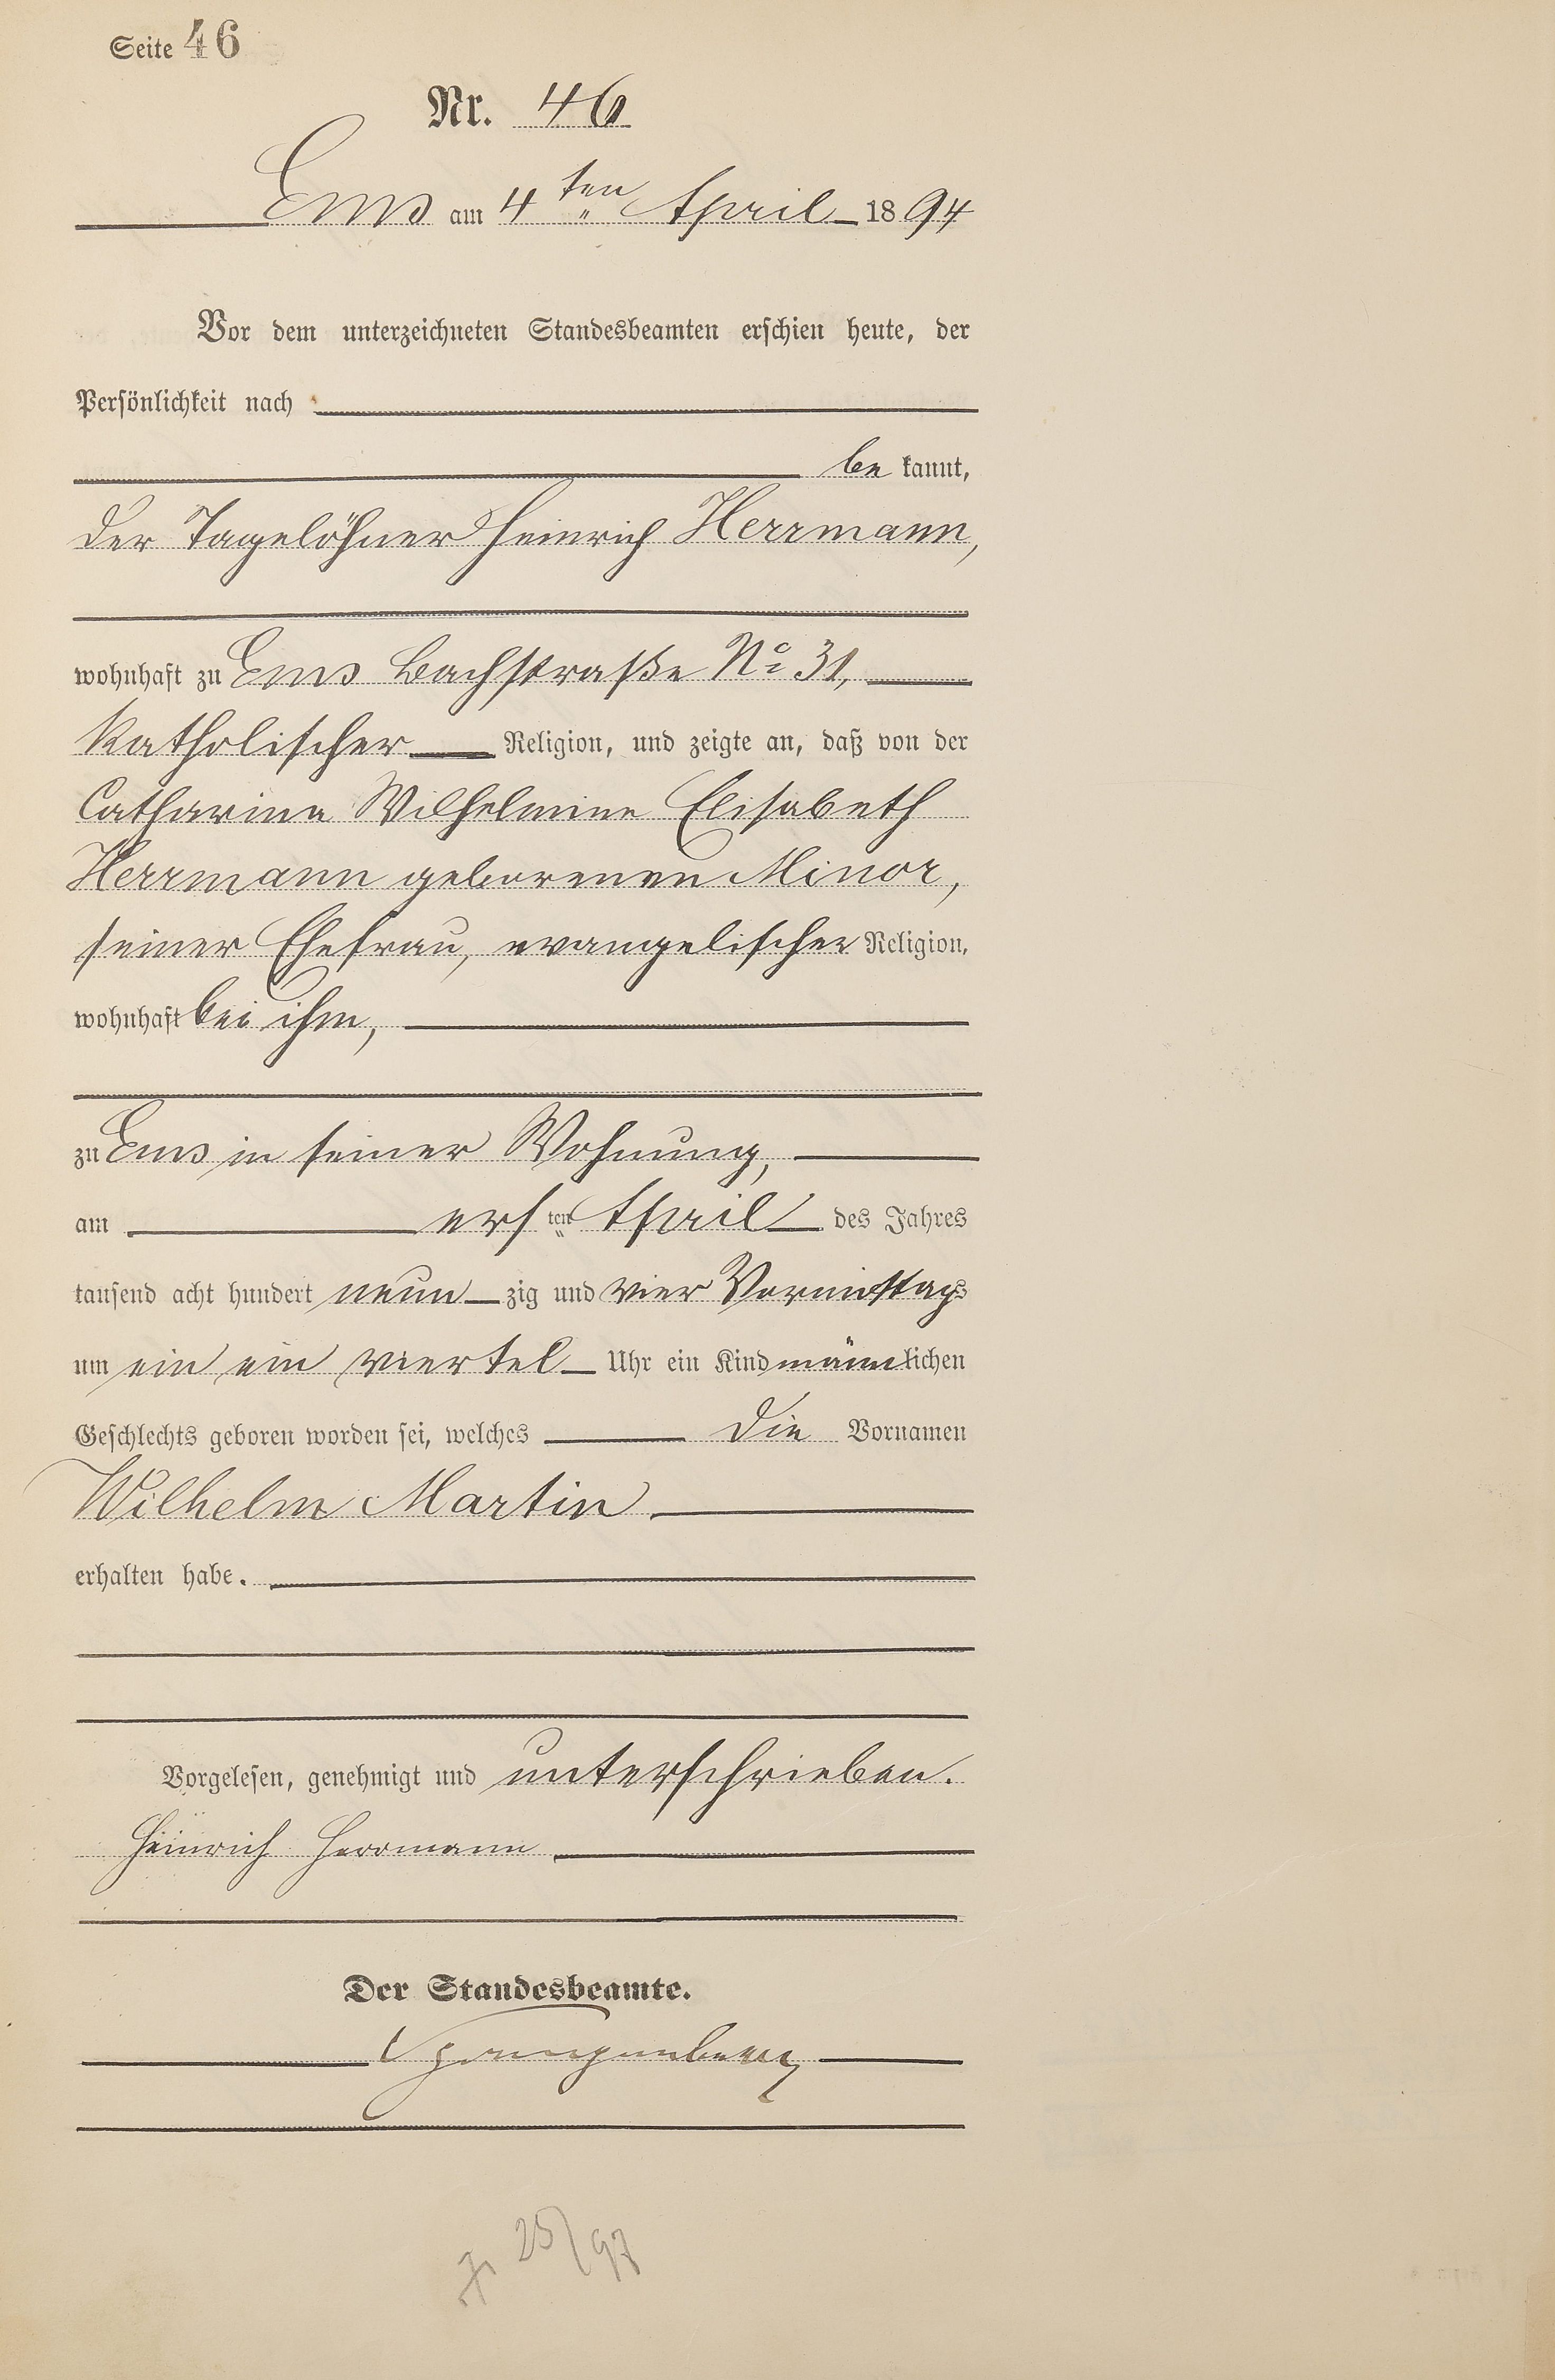 Seite 46
Nr. 46
Ems am 4ten April 1894
Vor dem unterzeichneten Standesbeamten erschien heute, der
Persönlichkeit nach
be kannt,
der Tagelöhner Heinrich Herrmann,
wohnhaft zu Ems Bachstraße No 31,
katholischer Religion, und zeigte an, daß von der
Catharina Wilhelmine Elisabeth
Herrmann geborenen Minor,
seiner Ehefrau, evangelischer Religion,
wohnhaft bei ihm,
zu Ems in seiner Wohnung,
am ersten April des Jahres
tausend acht hundert neun zig und vier Vormittags
um ein ein viertel Uhr ein Kind männlichen
Geschlechts geboren worden sei, welches die Vornamen
Wilhelm Martin
erhalten habe.
Vorgelesen, genehmigt und unterschrieben.
Heinrich Herrmann
Der Standesbeamte.
Spangenberg
25/97